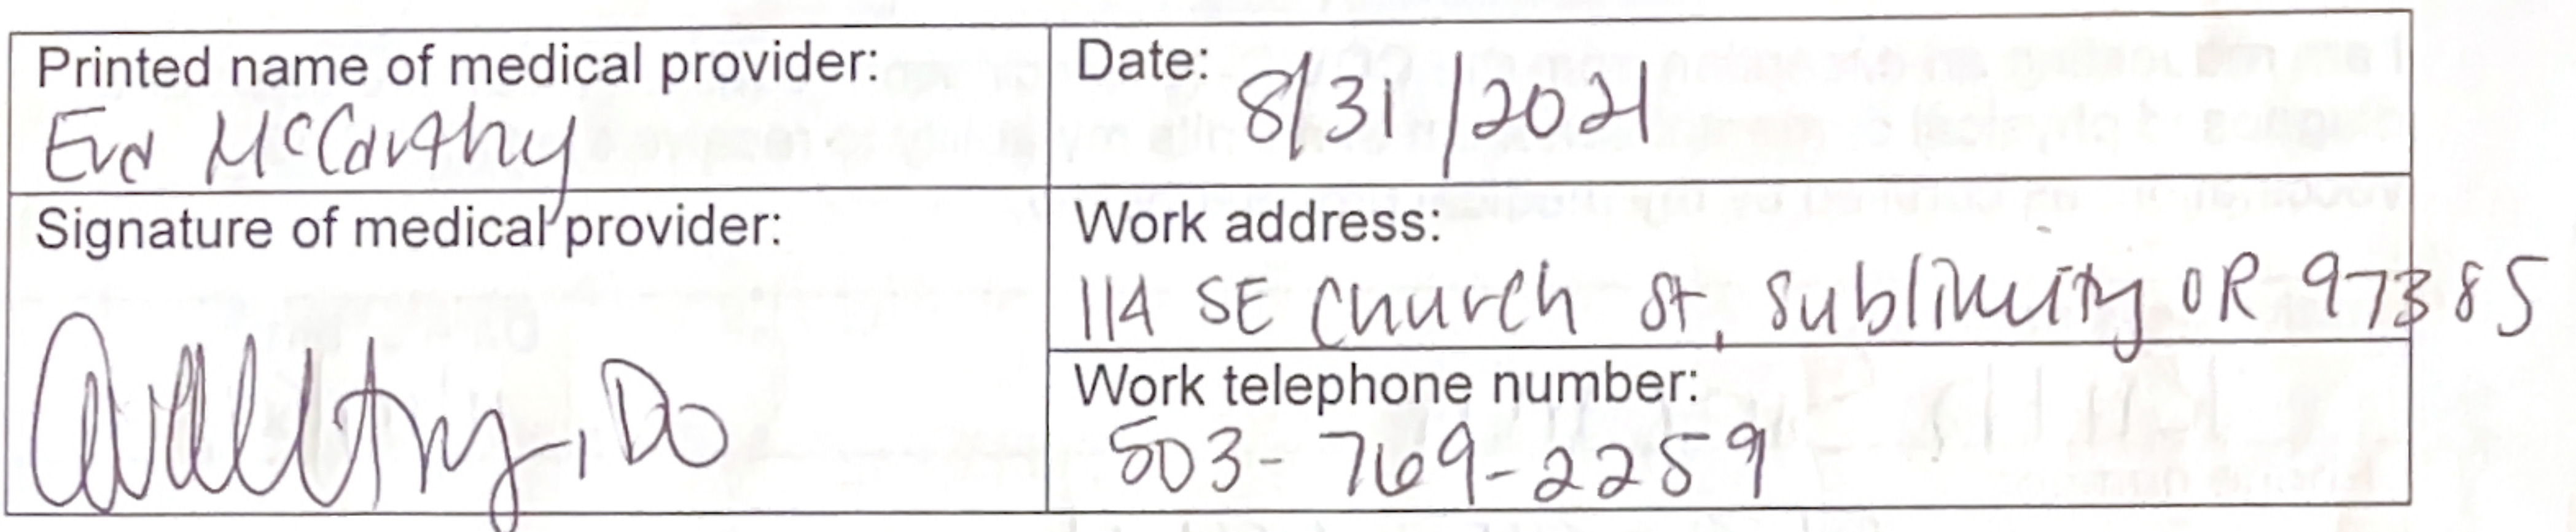 Printed name of medical provider:
Eva McCarthy
Date: 8/31/2021
Signature of medical provider:
DO
Work address:
114 SE Church St, Sublimity OR 97385
Work telephone number:
503-769-2259